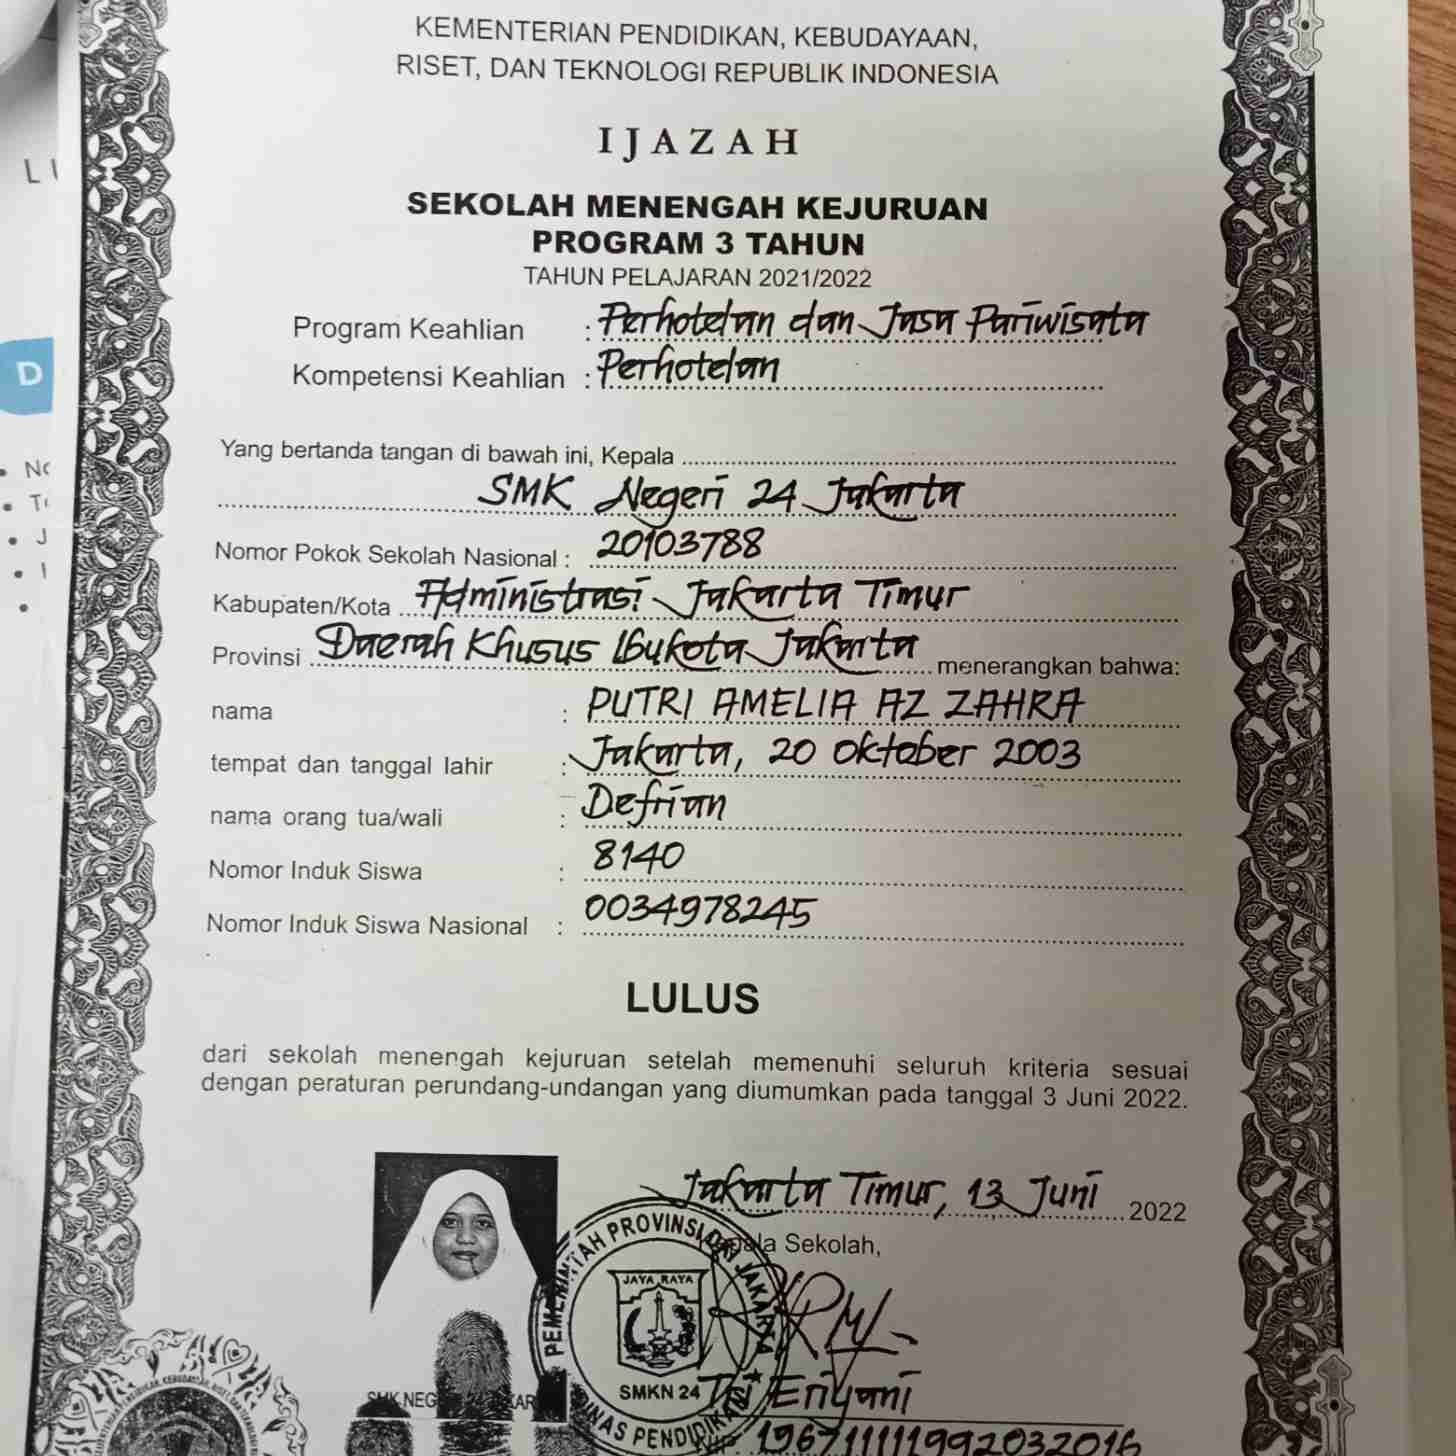 KEMENTERIAN PENDIDIKAN, KEBUDAYAAN,
RISET, DAN TEKNOLOGI REPUBLIK INDONESIA
IJAZAH
SEKOLAH MENENGAH KEJURUAN
PROGRAM 3 TAHUN
TAHUN PELAJARAN 2021/2022
Program Keahlian : Perhotelan dan Jasa Pariwisata
Kompetensi Keahlian : Perhotelan
Yang bertanda tangan di bawah ini, Kepala
SMK Negeri 24 Jakarta
Nomor Pokok Sekolah Nasional : 20103788
Kabupaten/Kota Administrasi Jakarta Timur
Provinsi Daerah Khusus Ibukota Jakarta menerangkan bahwa:
nama : PUTRI AMELIA AZ ZAHRA
tempat dan tanggal lahir : Jakarta, 20 Oktober 2003
nama orang tua/wali : Defrian
Nomor Induk Siswa : 8140
Nomor Induk Siswa Nasional : 0034978245
LULUS
dari sekolah menengah kejuruan setelah memenuhi seluruh kriteria sesuai
dengan peraturan perundang-undangan yang diumumkan pada tanggal 3 Juni 2022.
Jakarta Timur, 13 Juni 2022
Kepala Sekolah,
PEMERINTAH PROVINSI DKI JAKARTA
JAYA RAYA
SMKN 24
DINAS PENDIDIKAN
Eriyani
NIP. 196711111992032016